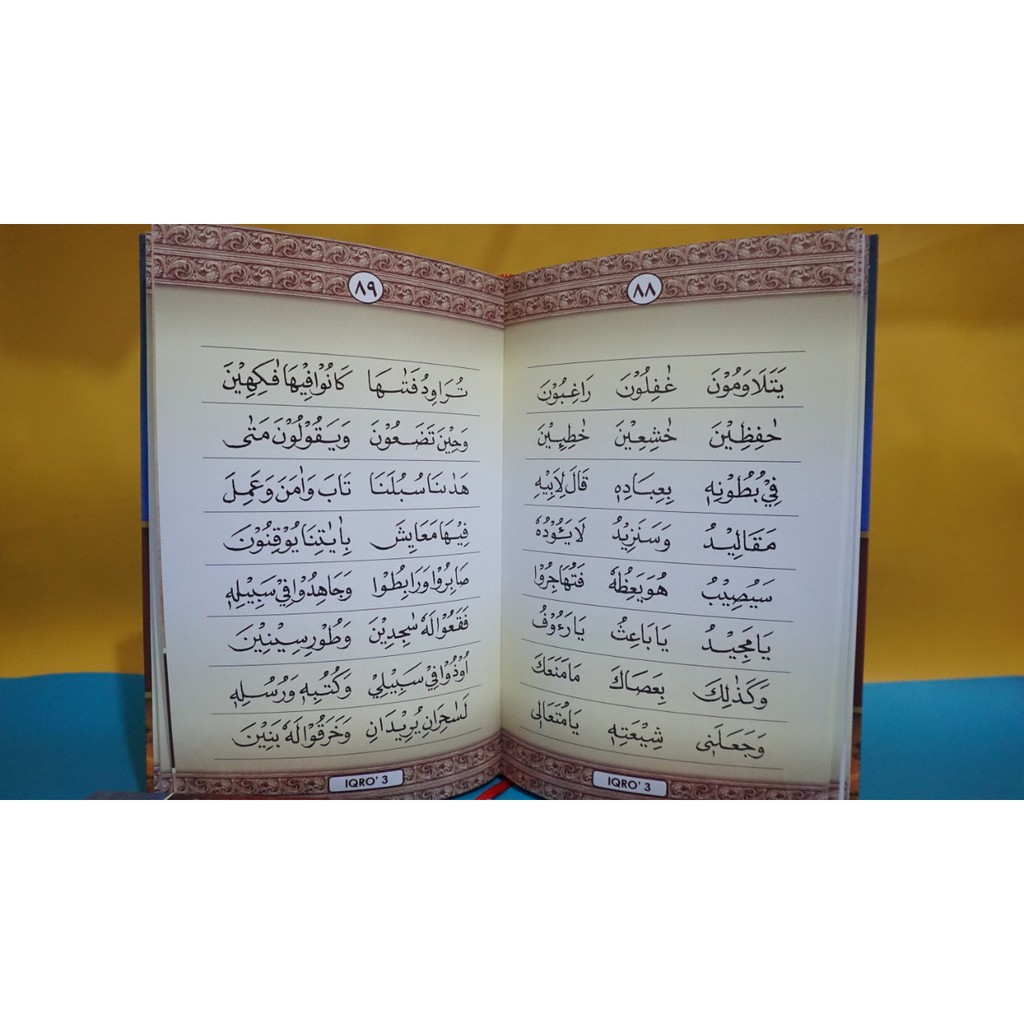 ٨٨
يَتَلَاوَمُوْنَ غٰفِلُوْنَ رَاغِبُوْنَ
حٰفِظِيْنَ خٰشِعِيْنَ خٰطِـِٔيْنَ
فِيْ بُطُوْنِهٖ بِعِبَادِهٖ قَالَ لِاَبِيْهِ
مَقَالِيْدُ وَسَنَزِيْدُ لَا يَـُٔوْدُهٗ
سَيُصِيْبُ هُوَ يَعِظُهٗ فَتُهَاجِرُوْا
يَا مَجِيْدُ يَا بَاعِثُ يَا رَءُوْفُ
وَكَذٰلِكَ بِعَصَاكَ مَا مَنَعَكَ
وَجَعَلَنٖى شِيْعَتِهٖ يَا مُتَعَالٖى
IQRO' 3
٨٩
تُرَاوِدُ فَتٰىهَا كَانُوْا فِيْهَا فٰكِهِيْنَ
وَحِيْنَ تَضَعُوْنَ وَيَقُوْلُوْنَ مَتٰى
هَدٰىنَا سُبُلَنَا تَابَ وَاٰمَنَ وَعَمِلَ
فِيْهَا مَعَايِشَ بِاٰيٰتِنَا يُوْقِنُوْنَ
صَابِرُوْا وَرَابِطُوْا وَجَاهِدُوْا فِيْ سَبِيْلِهٖ
فَقَعُوْا لَهٗ سٰجِدِيْنَ وَطُوْرِ سِيْنِيْنَ
اُوْذُوْا فِيْ سَبِيْلِيْ وَكُتُبِهٖ وَرُسُلِهٖ
لَسٰحِرَانِ يُرِيْدَانِ وَخَرَقُوْا لَهٗ بَنِيْنَ
IQRO' 3